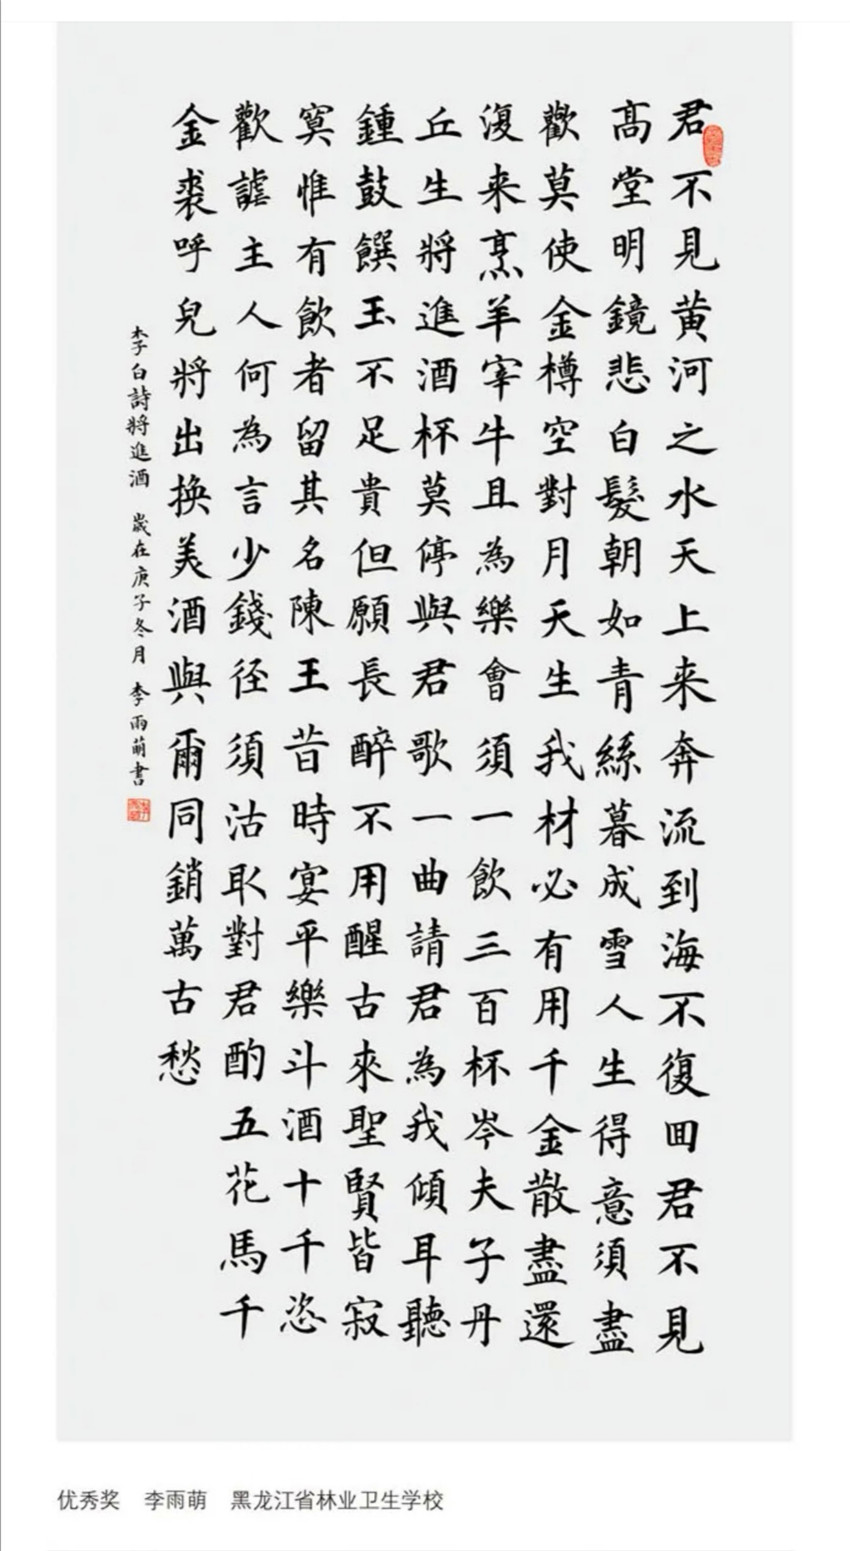 君不見黄河之水天上来奔流到海不復囬君不見
髙堂明鏡悲白髮朝如青絲暮成雪人生得意須盡
歡莫使金樽空對月天生我材必有用千金散盡還
復来烹羊宰牛且為樂會須一飲三百杯岑夫子丹
丘生將進酒杯莫停與君歌一曲請君為我傾耳聽
鍾鼓饌玉不足貴但願長醉不用醒古來聖賢皆寂
寞惟有飲者留其名陳王昔時宴平樂斗酒十千恣
歡謔主人何為言少錢径須沽取對君酌五花馬千
金裘呼兒將出换美酒與爾同銷萬古愁
李白詩將進酒 歲在庚子冬月 李雨萌書
优秀奖 李雨萌 黑龙江省林业卫生学校